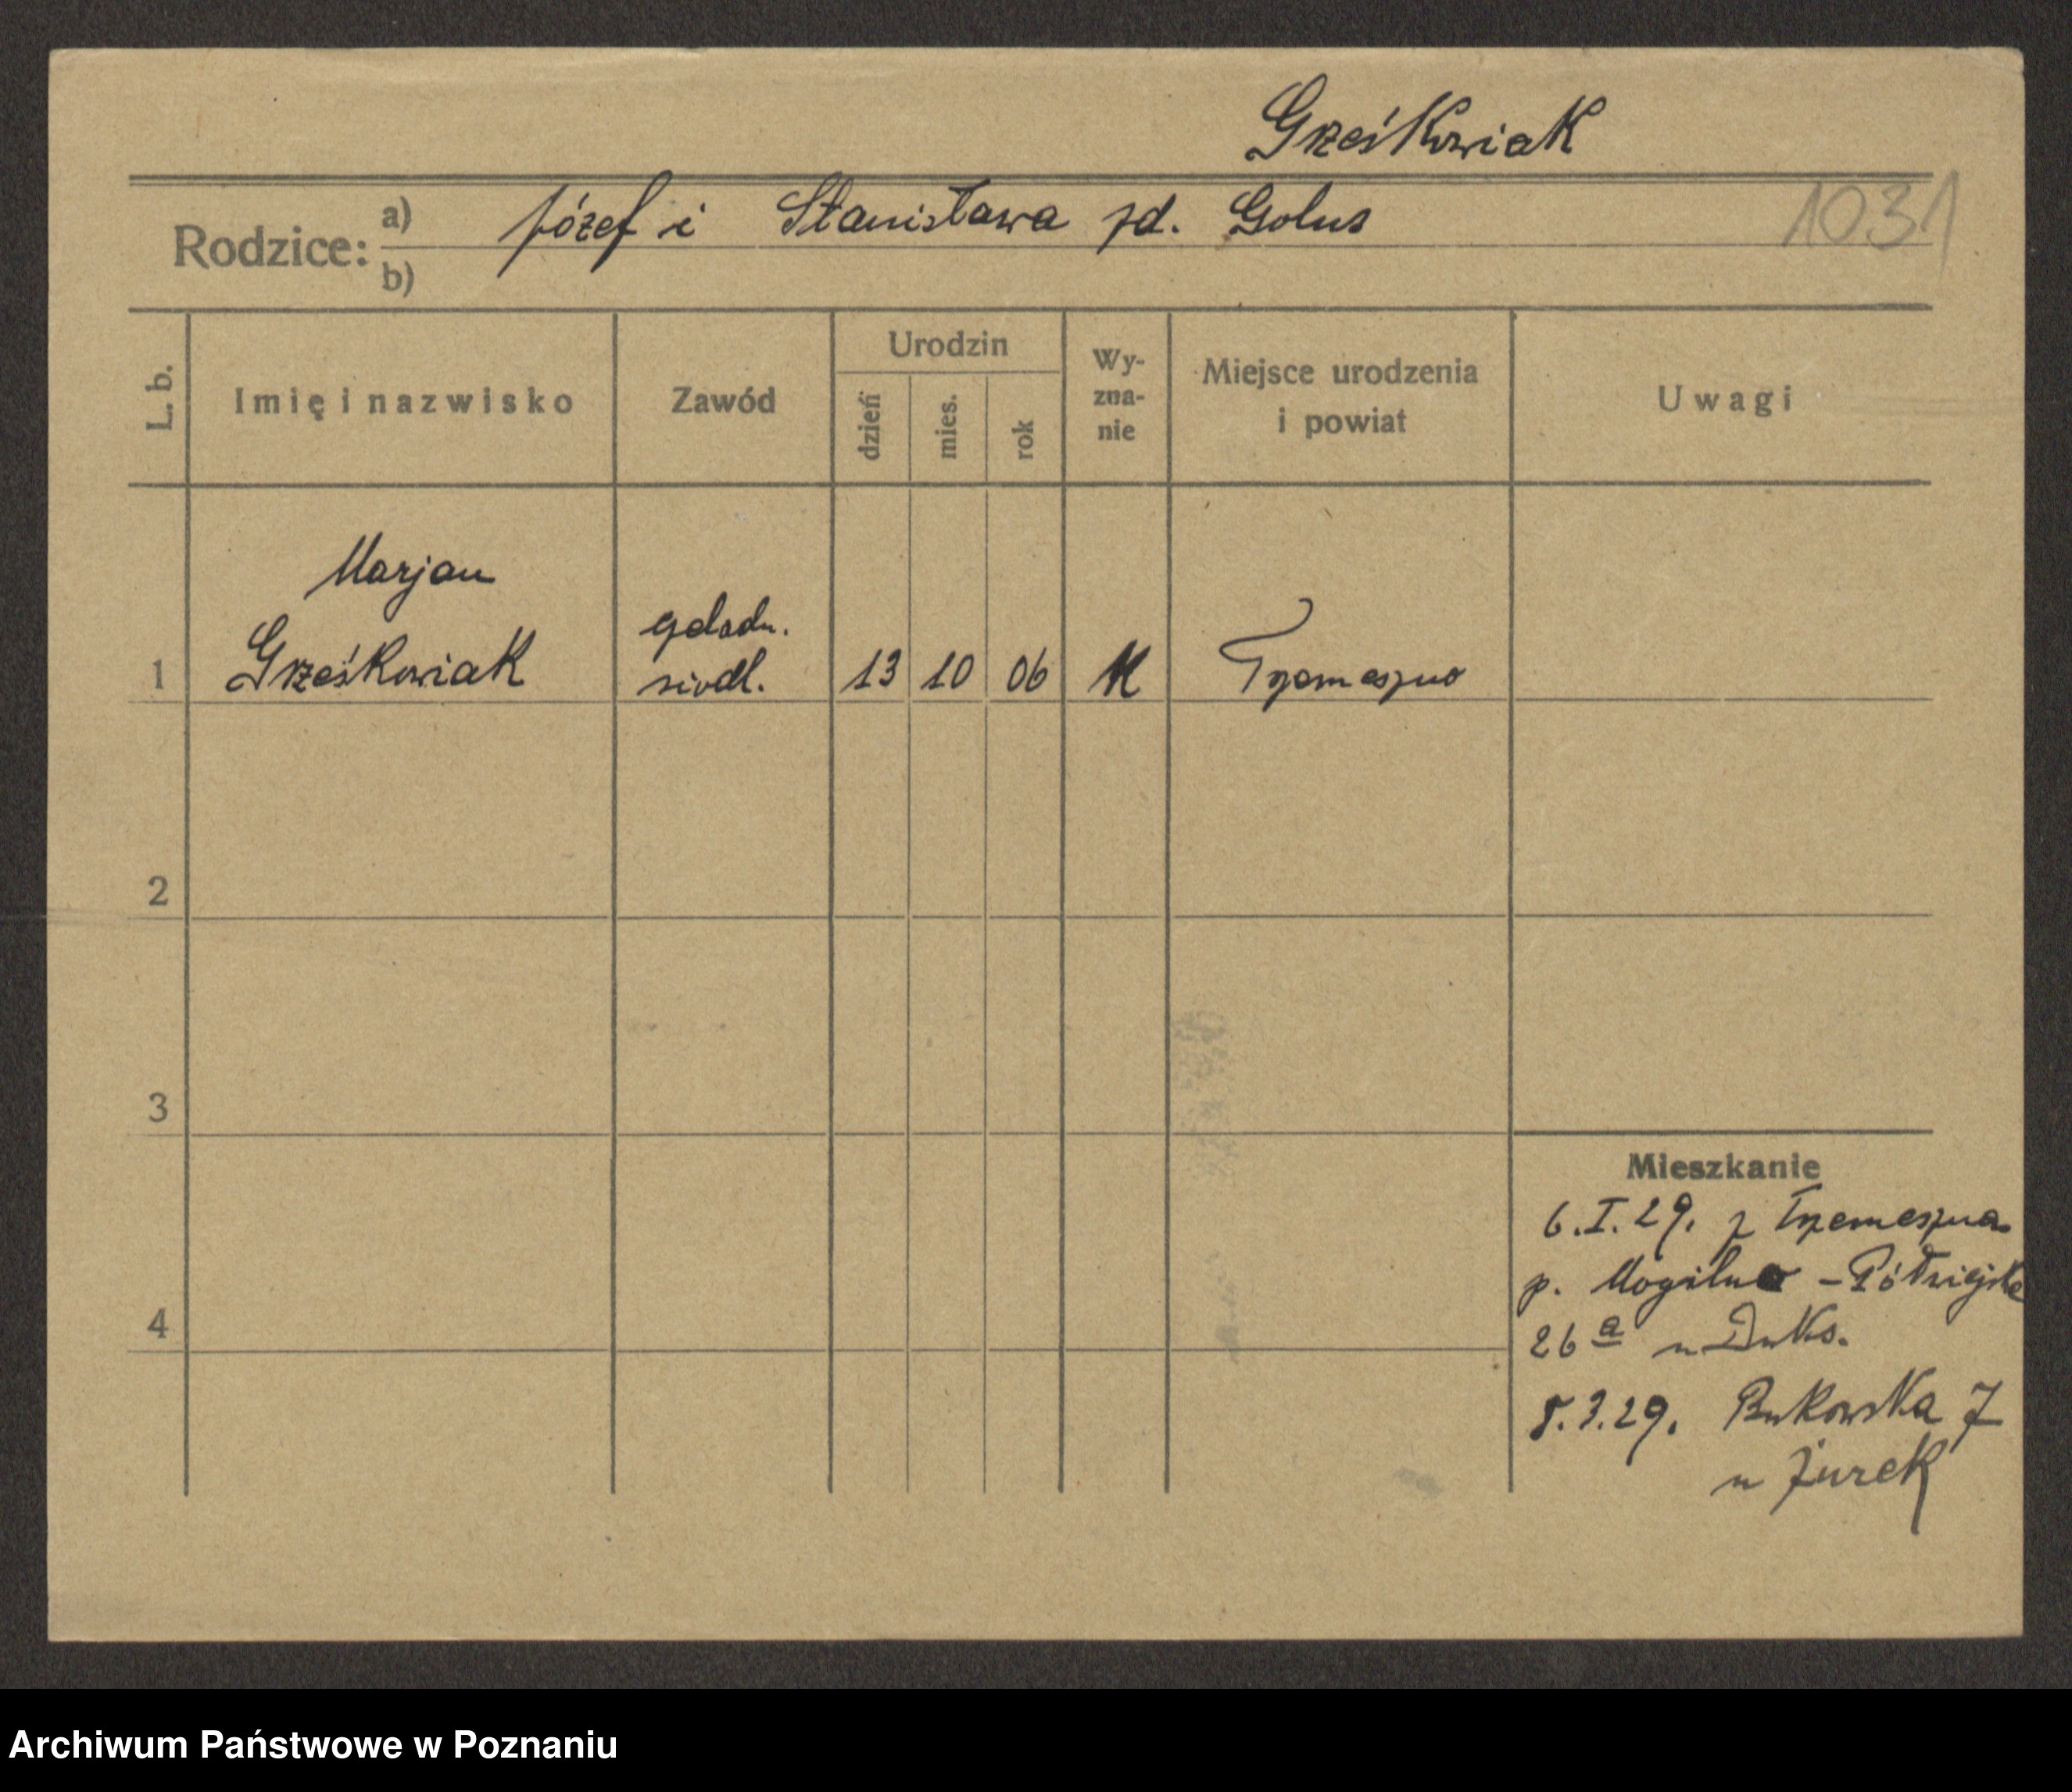 Grześkowiak
Rodzice: a) Józef i Stanisława zd. Golus
b)
1031
L. b.
Imię i nazwisko
Zawód
Urodzin
dzień
mies.
rok
Wy-
zna-
nie
Miejsce urodzenia
i powiat
Uwagi
Marjan
1 Grześkowiak
czeladn.
siodl.
13 10 06 K Trzemeszno
2
3
4
Mieszkanie
6.I.29. z Trzemeszna
p. Mogilno - Półwiejska
26 a u
8.3.29. Bukowska 7
u Żurek
Archiwum Państwowe w Poznaniu